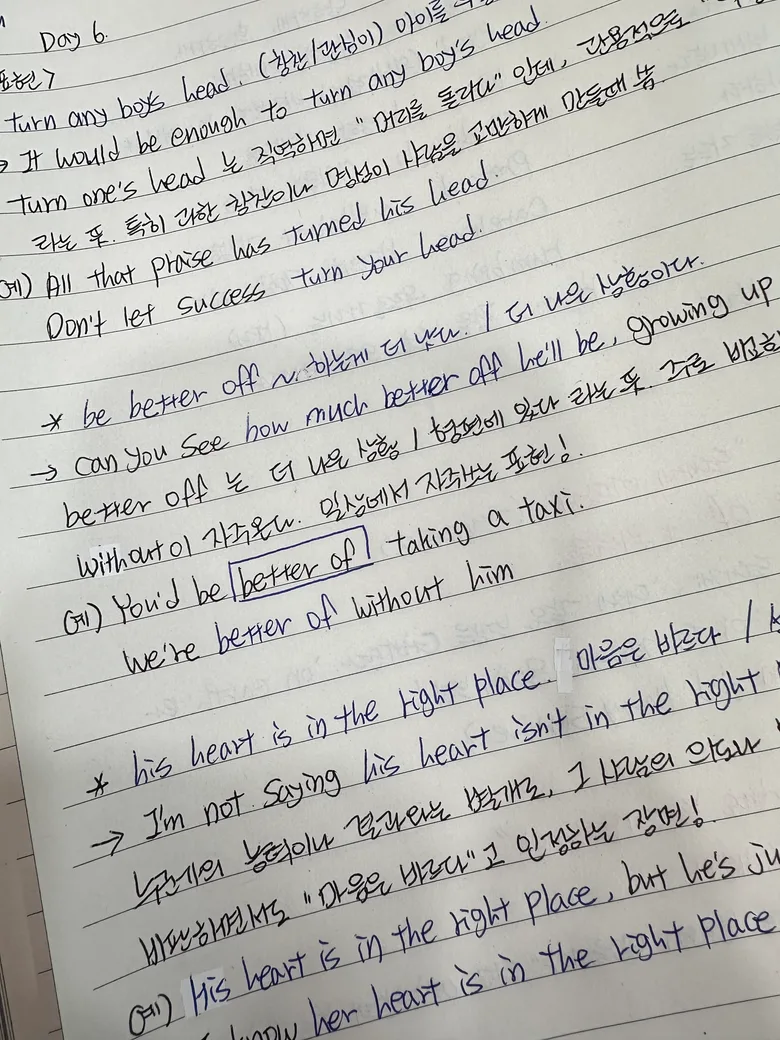 Day 6.
표현>
turn any boy's head. (칭찬/관심이) 아이를
→ It would be enough to turn any boy's head.
turn one's head 는 직역하면 "머리를 돌리다" 인데, 관용적으로
라는 뜻. 특히 과한 칭찬이나 명성이 사람을 교만하게 만들때 씀.
예) All that praise has turned his head.
Don't let success turn your head.
* be better off ~. 하는게 더 낫다. / 더 나은 상황이다.
→ Can you see how much better off he'll be, growing up
better off 는 더 나은 상황 / 형편에 있다 라는 뜻. 주로 비교
without이 자주온다. 일상에서 자주쓰는 표현!
예) You'd be better of taking a taxi.
We're better of without him
* his heart is in the right place. 마음은 바르다 /
→ I'm not saying his heart isn't in the right
누군가의 능력이나 결과와는 별개로, 그 사람의 의도나
비판하면서도 "마음은 바르다"고 인정하는 장면!
예) His heart is in the right place, but he's ju
know her heart is in the right place